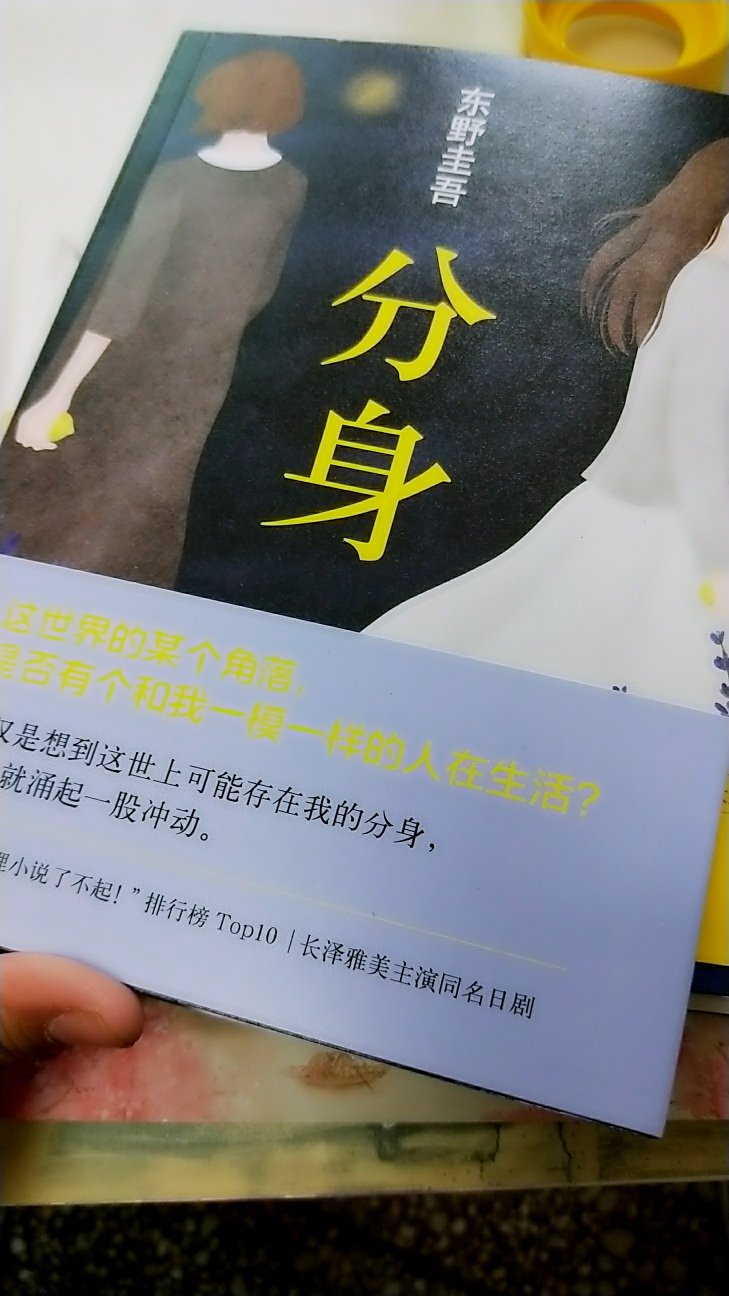 东野圭吾
分身
这世界的某个角落，
是否有个和我一模一样的人在生活？
仅是想到这世上可能存在我的分身，
就涌起一股冲动。
理小说了不起！”排行榜 Top10 | 长泽雅美主演同名日剧